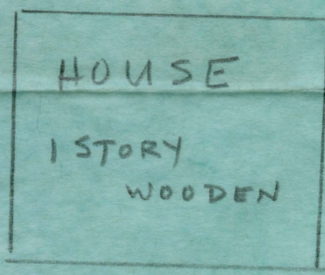 HOUSE
1 STORY
WOODEN